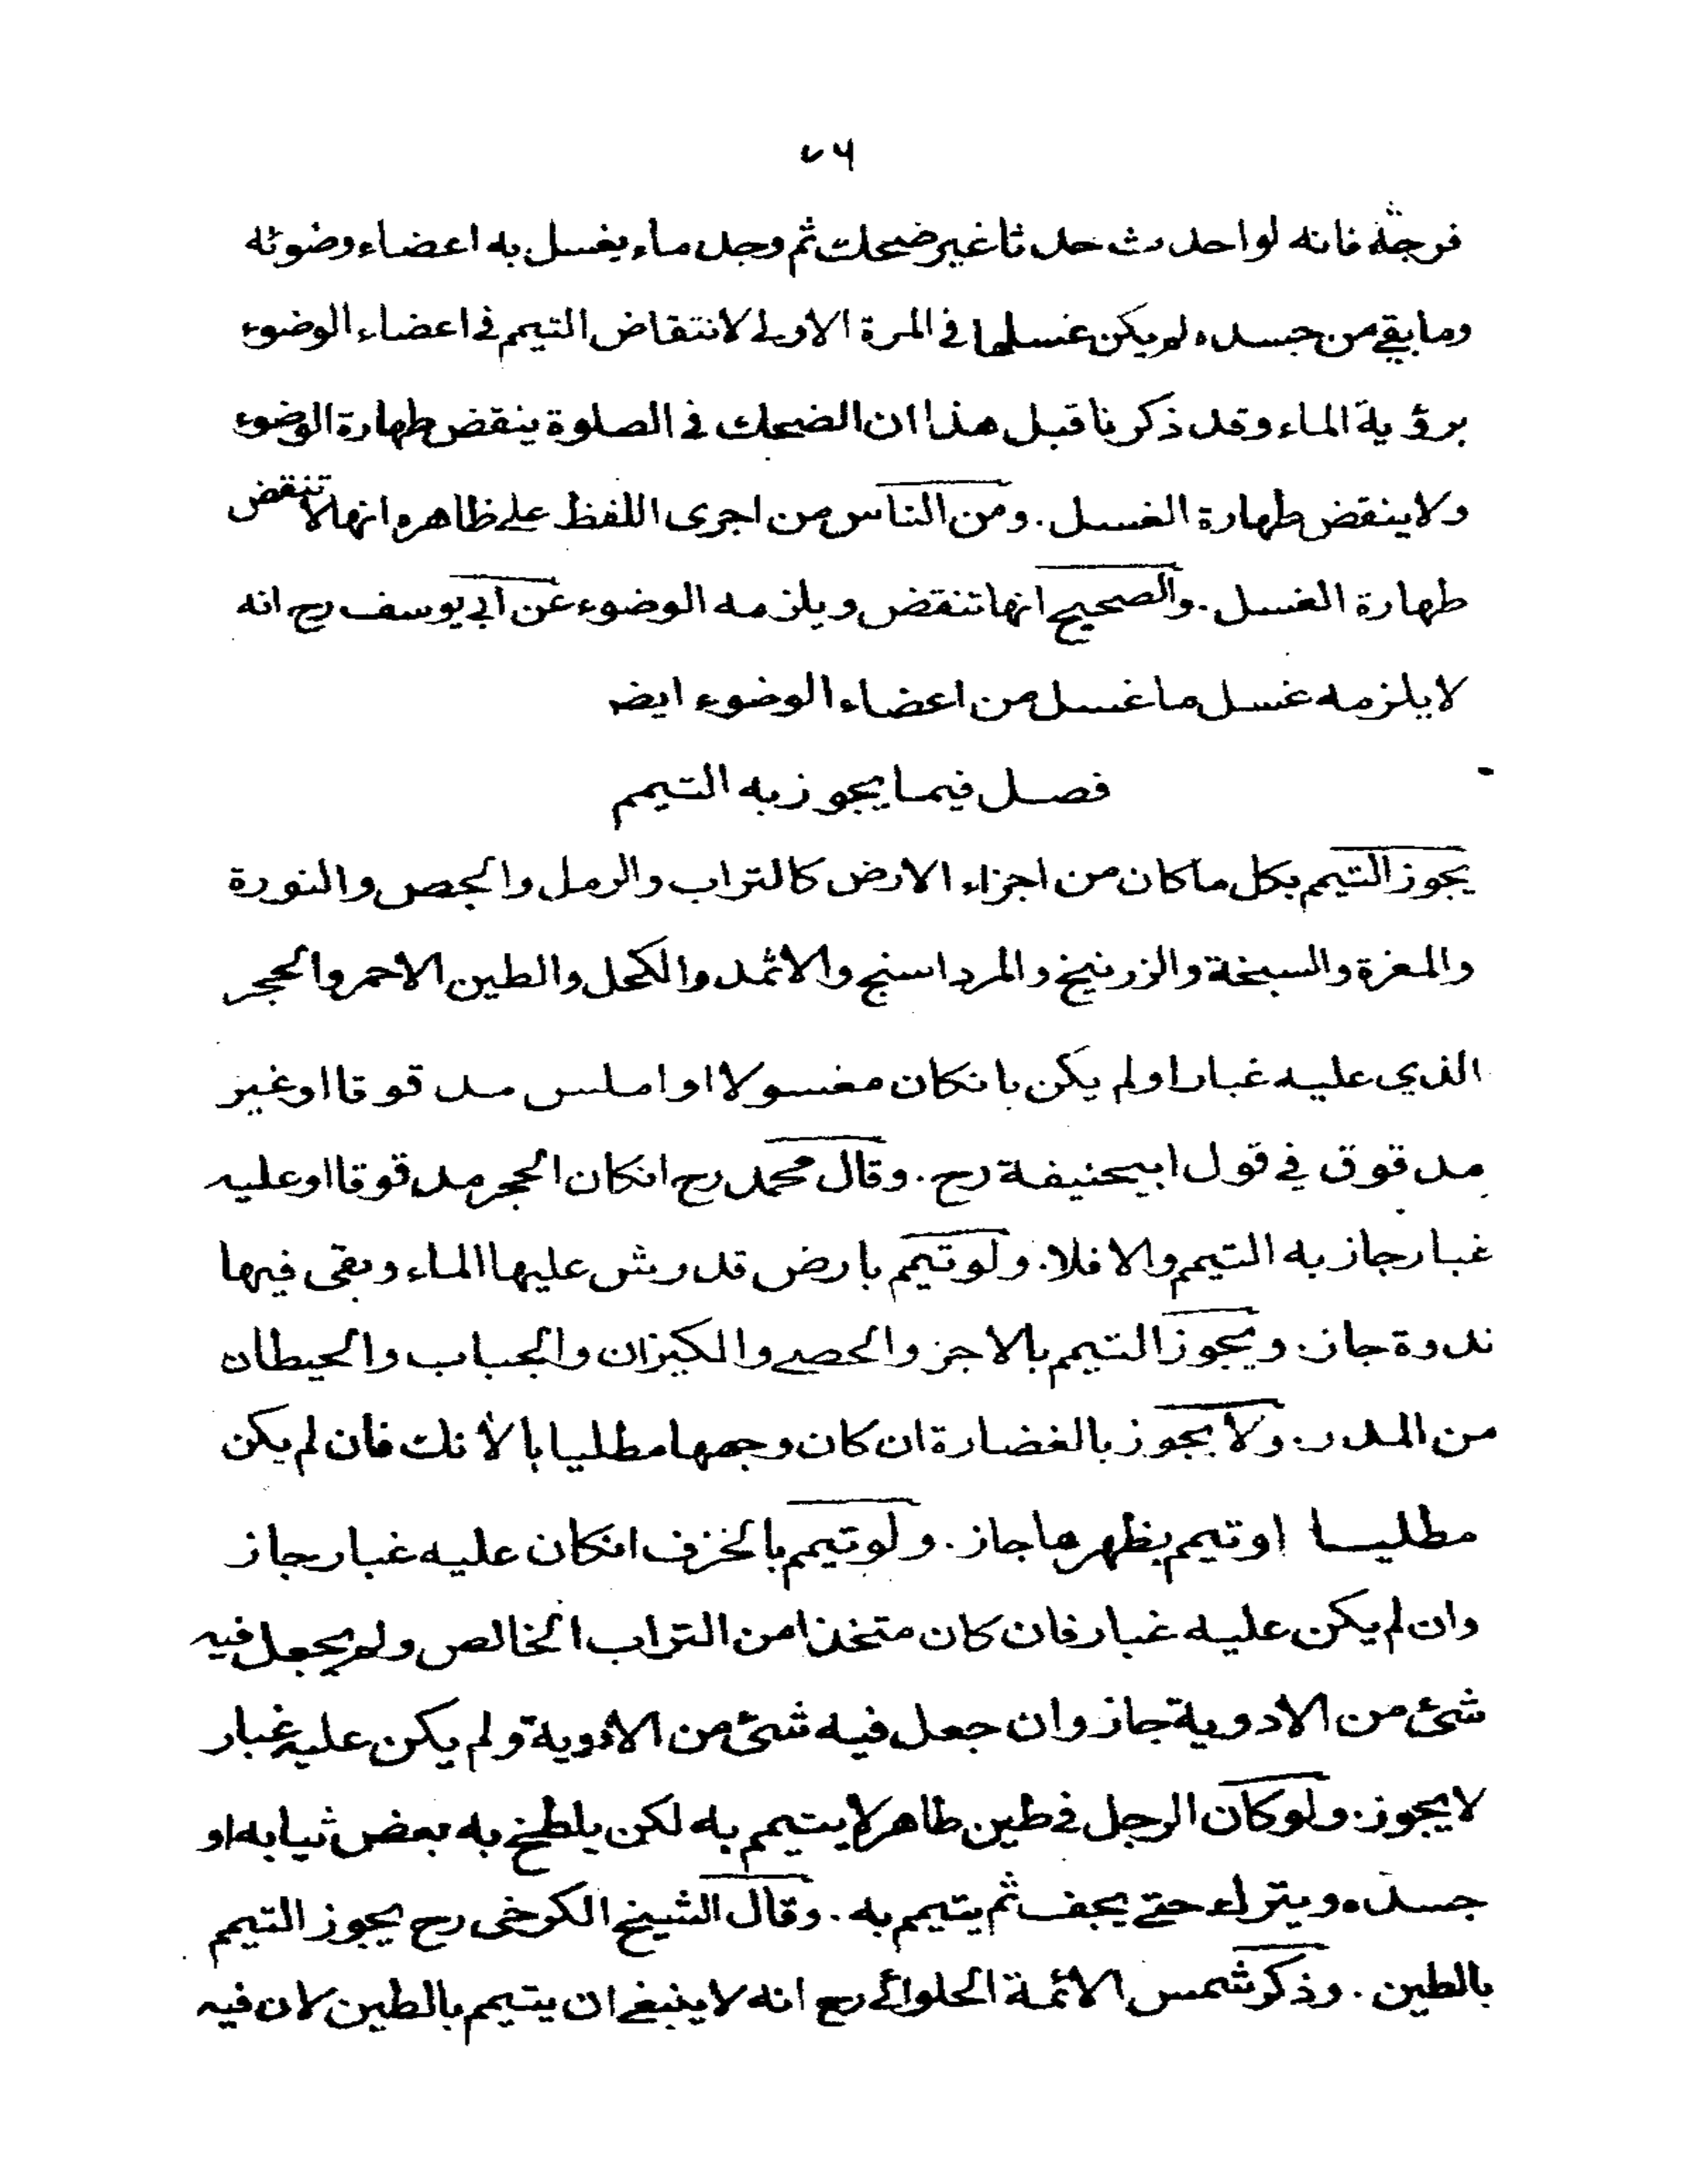 ٧٦
فرجة فانه لو احدث حدثا غير ضحك ثم وجد ماء يغسل به اعضاء وضوئه
وما بقي من جسده لم يكن غسلها في المرة الاولى لانتقاض التيمم في اعضاء الوضوء
برؤية الماء وقد ذكرنا قبل هذا ان الضحك في الصلوة ينقض طهارة الوضوء
ولا ينقض طهارة الغسل. ومن الناس من اجرى اللفظ على ظاهره انها لا تنقض
طهارة الغسل. والصحيح انها تنقض ويلزمه الوضوء عن ابي يوسف رح انه
لا يلزمه غسل ما غسل من اعضاء الوضوء ايضہ
فصل فيما يجوز به التيمم
يجوز التيمم بكل ما كان من اجزاء الارض كالتراب والرمل والجص والنورة
والمغرة والسبخة والزرنيخ والمرداسنج والاثمد والكحل والطين الاحمر والحجر
الذي عليه غبار او لم يكن بانكان مغسولا او املس مدقوقا او غير
مدقوق في قول ابيحنيفة رح. وقال محمد رح انكان الحجر مدقوقا او عليه
غبار جاز به التيمم والا فلا. ولو تيمم بارض قد رش عليها الماء وبقى فيها
ندوة جاز. ويجوز التيمم بالاجز والحصى والكيزان والجباب والحيطان
من المدر. ولا يجوز بالغضارة ان كان وجهها مطليا بالأنك فان لم يكن
مطليا او تيمم بظهرها جاز. ولو تيمم بالخزف انكان عليه غبار جاز
وان لم يكن عليه غبار فان كان متخذا من التراب الخالص ولم يجعل فيه
شئ من الادوية جاز وان جعل فيه شئ من الادوية ولم يكن عليه غبار
لا يجوز. ولو كان الرجل في طين طاهر لا يتيمم به لكن يلطخ به بعض ثيابه او
جسده ويترك حتى يجف ثم يتيمم به. وقال الشيخ الكرخى رح يجوز التيمم
بالطين. وذكر شمس الائمة الحلوائي رح انه لا ينبغي ان يتيمم بالطين لان فيه